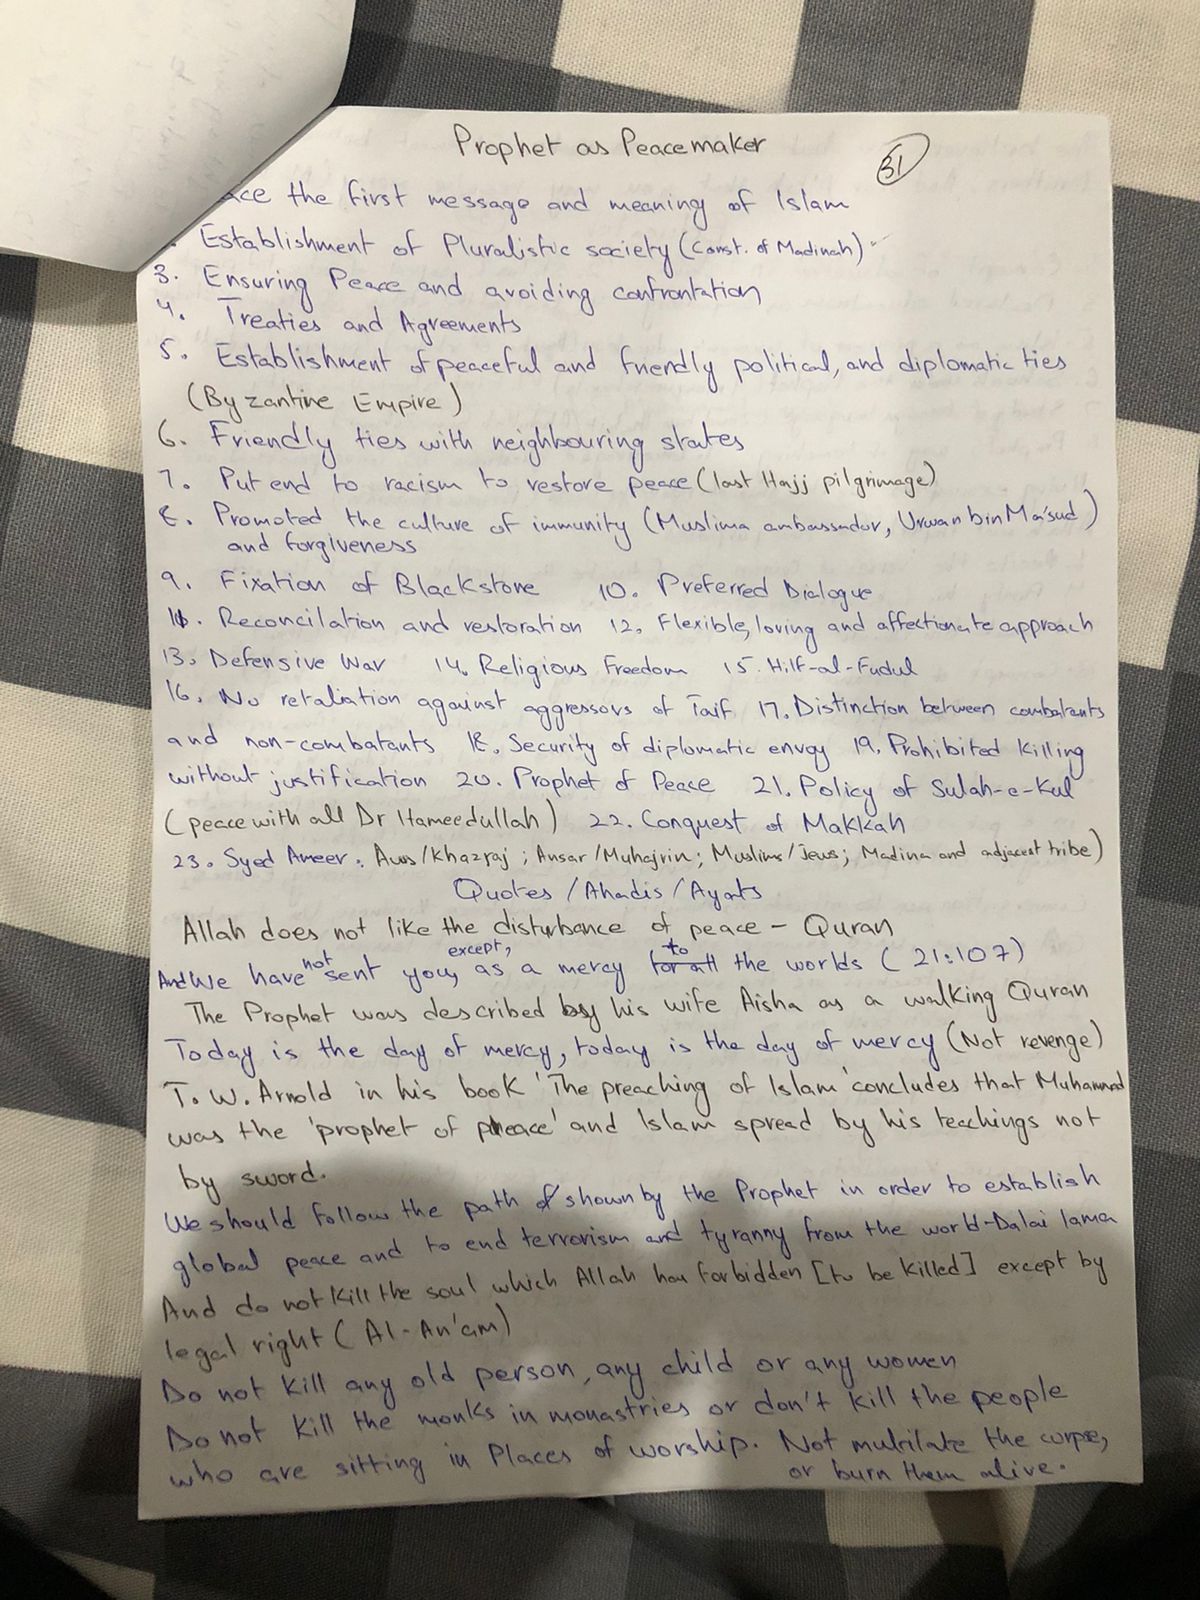 Prophet as Peacemaker
31
ace the first message and meaning of Islam
. Establishment of Pluralistic society (Const. of Madinah)
3. Ensuring Peace and avoiding confrontation
4. Treaties and Agreements
5. Establishment of peaceful and friendly political, and diplomatic ties
(Byzantine Empire)
6. Friendly ties with neighbouring states
7. Put end to racism to restore peace (last Hajj pilgrimage)
8. Promoted the culture of immunity (Muslima ambassador, Urwan bin Ma'sud)
and forgiveness
9. Fixation of Blackstone 10. Preferred Dialogue
11. Reconcilation and restoration 12. Flexible, loving and affectionate approach
13. Defensive War 14. Religious Freedom 15. Hilf-al-Fudul
16. No retaliation against aggressors of Taif 17. Distinction between combatants
and non-combatants 18. Security of diplomatic envoy 19. Prohibited Killing
without justification 20. Prophet of Peace 21. Policy of Sulah-e-Kul
(peace with all Dr Hameedullah) 22. Conquest of Makkah
23. Syed Ameer: Aws/Khazraj; Ansar/Muhajrin; Muslims/Jews; Madina and adjacent tribe)
Quotes/Ahadis/Ayats
Allah does not like the disturbance of peace - Quran
And We have not sent you, except, as a mercy for all to the worlds (21:107)
The Prophet was described by his wife Aisha as a walking Quran
Today is the day of mercy, today is the day of mercy (Not revenge)
T. W. Arnold in his book 'The preaching of Islam' concludes that Muhammad
was the 'prophet of peace' and Islam spread by his teachings not
by sword.
We should follow the path shown by the Prophet in order to establish
global peace and to end terrorism and tyranny from the world-Dalai lama
And do not kill the soul which Allah has forbidden [to be killed] except by
legal right (Al-An'am)
Do not kill any old person, any child or any women
Do not kill the monks in monastries or don't kill the people
who are sitting in Places of worship. Not mutilate the corpse,
or burn them alive.